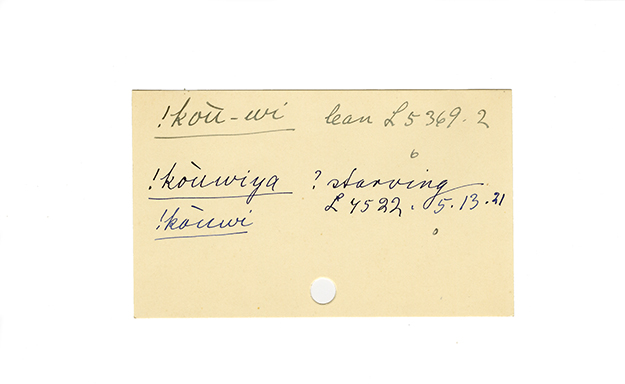 !kòu-wi lean L 5369. 2
6
!kòuwiya ? starving
L 4522. 5. 13. 21
!kòuwi
0